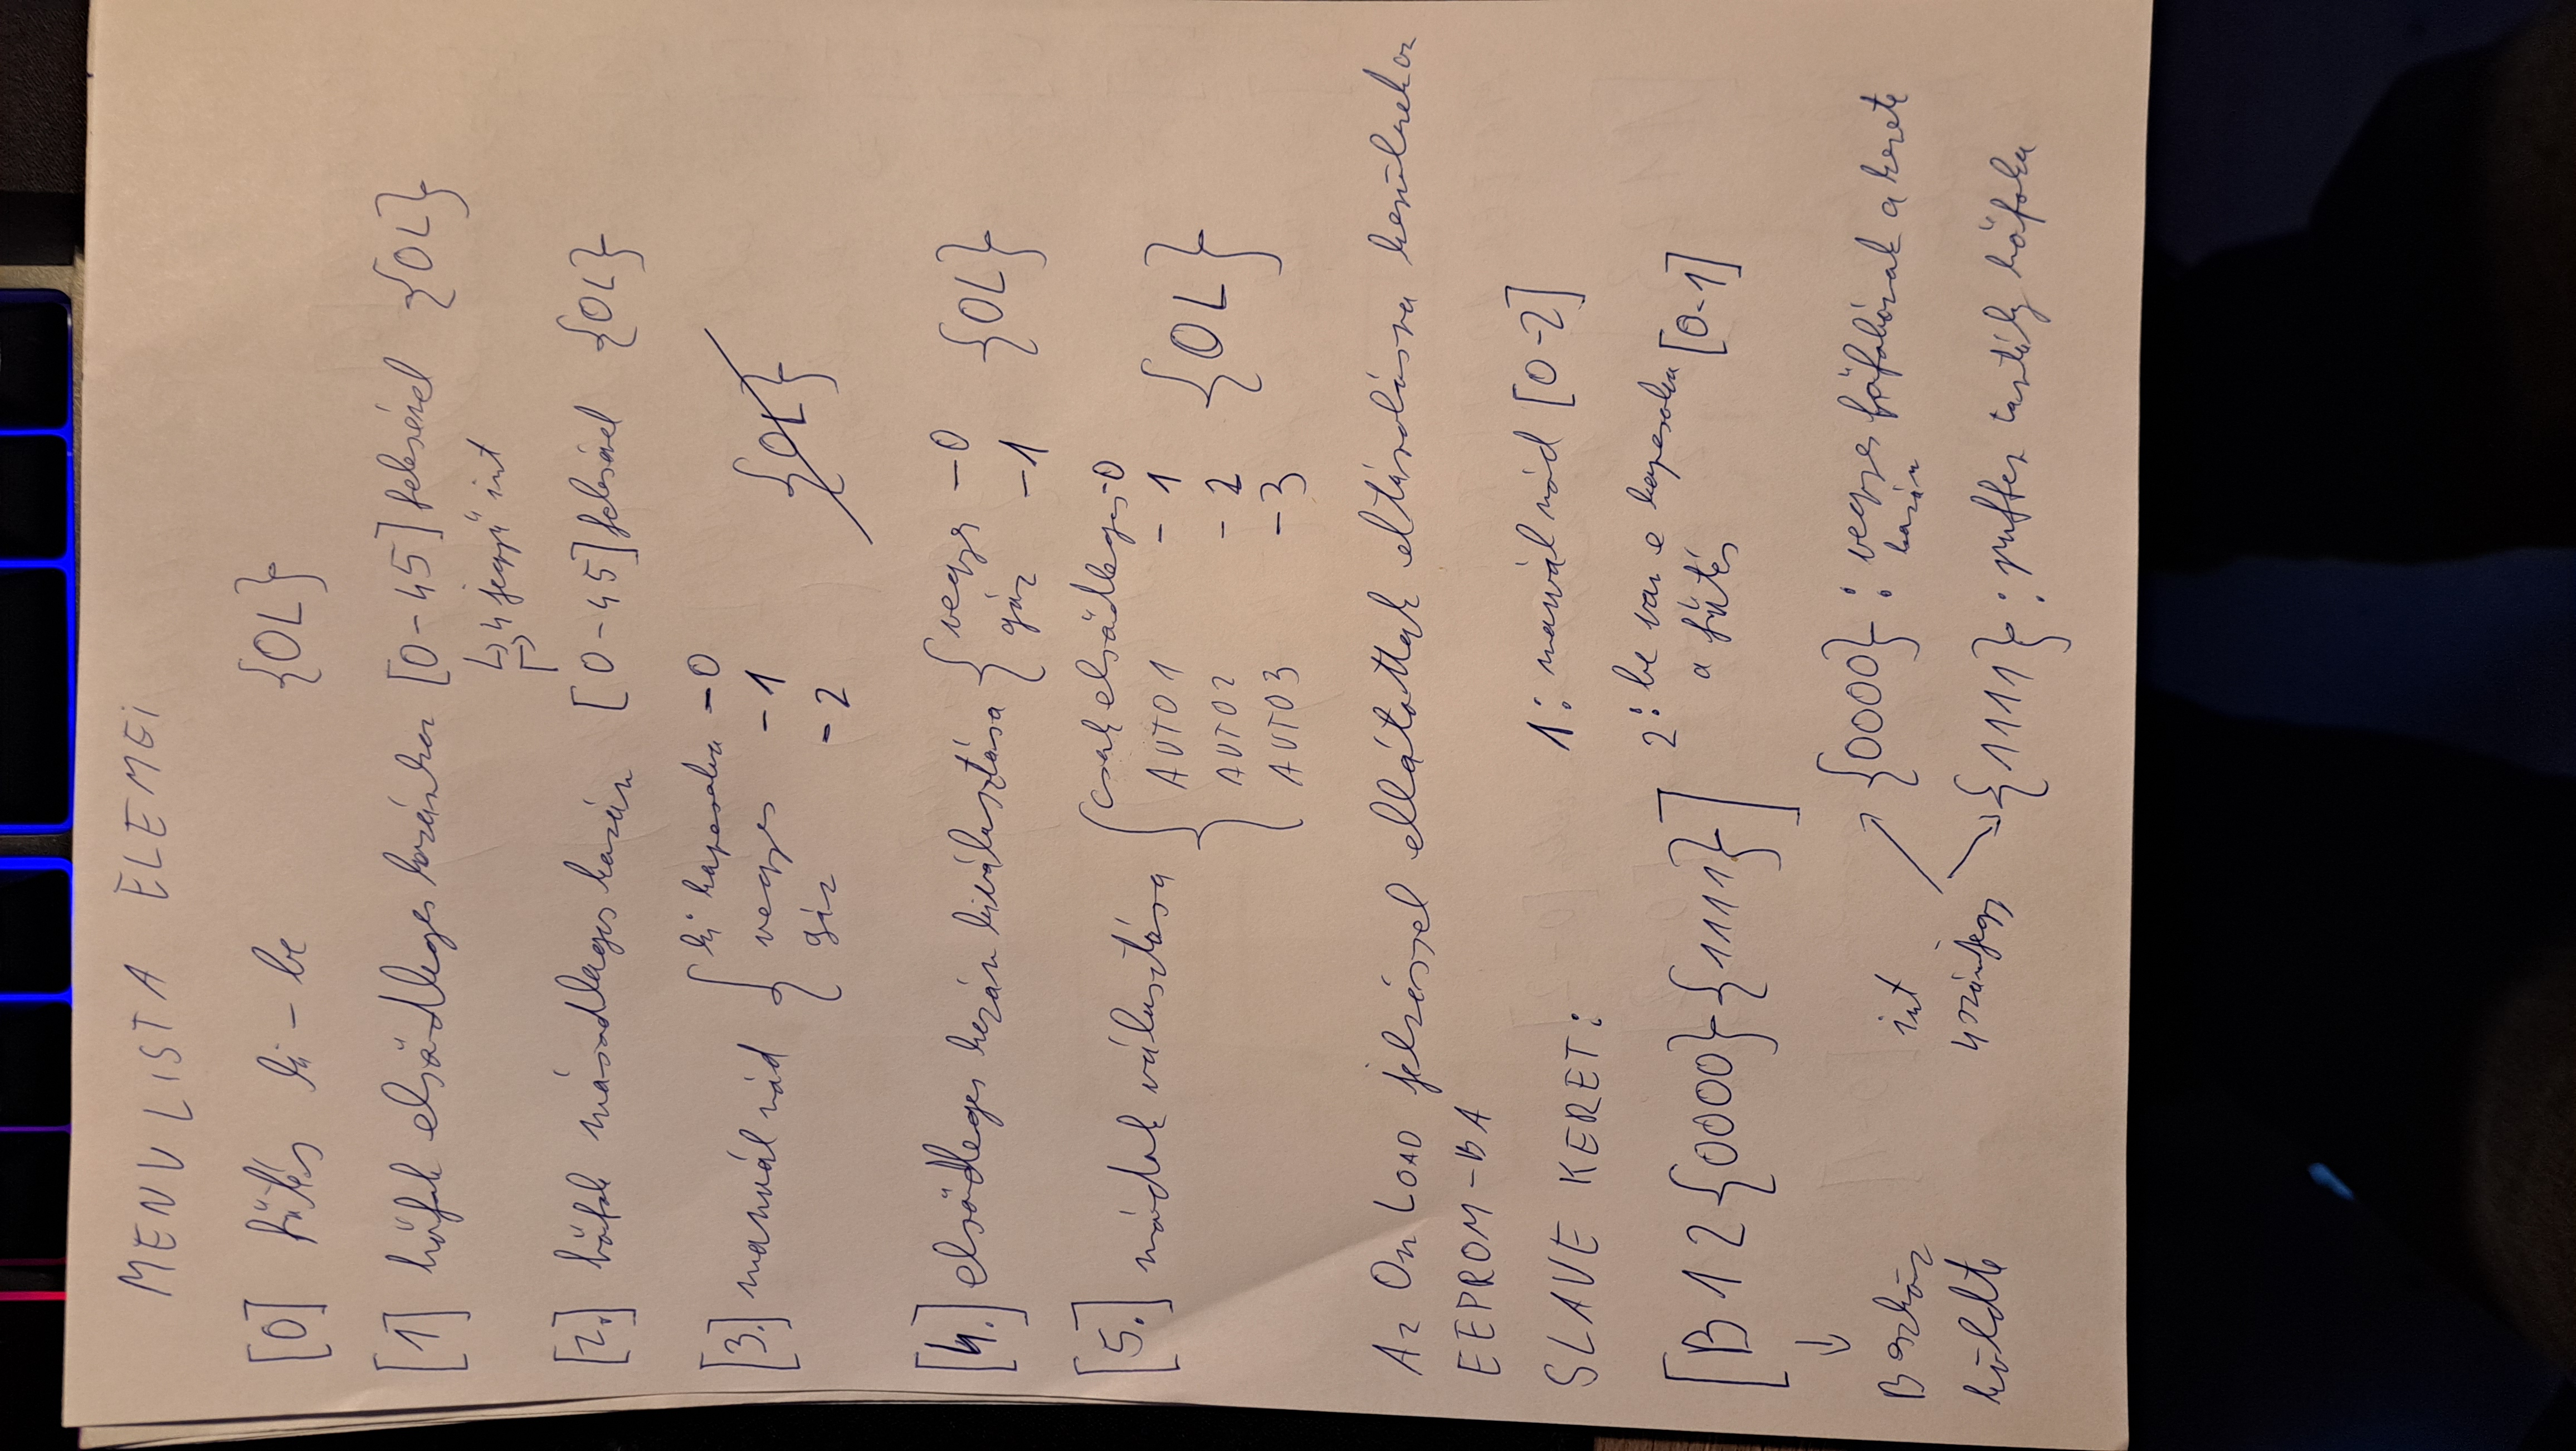 MENU LISTA ELEMEI
[0] fűtés ki - be {OL}
[1] hőfok elsődleges kazánhoz [0-45] felesével {OL}
↳ 4 jegyű int
[2.] hőfok másodlagos kazán [0-45] felesével {OL}
[3.] manuál mód { ki kapcsolva -0
vegyes -1
gáz -2
{OL}
[4.] elsődleges kazán kiválasztása { vegyes -0
gáz -1 {OL}
[5.] módok választása { csak elsődleges -0
AUTO1 -1
AUTO2 -2
AUTO3 -3
{OL}
Az On LOAD jelzéssel ellátottak eltárolásra kerülnek az
EEPROM-BA
SLAVE KERET:
1: manuál mód [0-2]
[B 1 2 {0000} {1111}]
2: be van e kapcsolva [0-1]
a fűtés
↓
B eszköz
küldte
int
4 számjegy
{0000}: vegyes hőfokának a kerete
kazán
{1111}: puffer tartály hőfoka